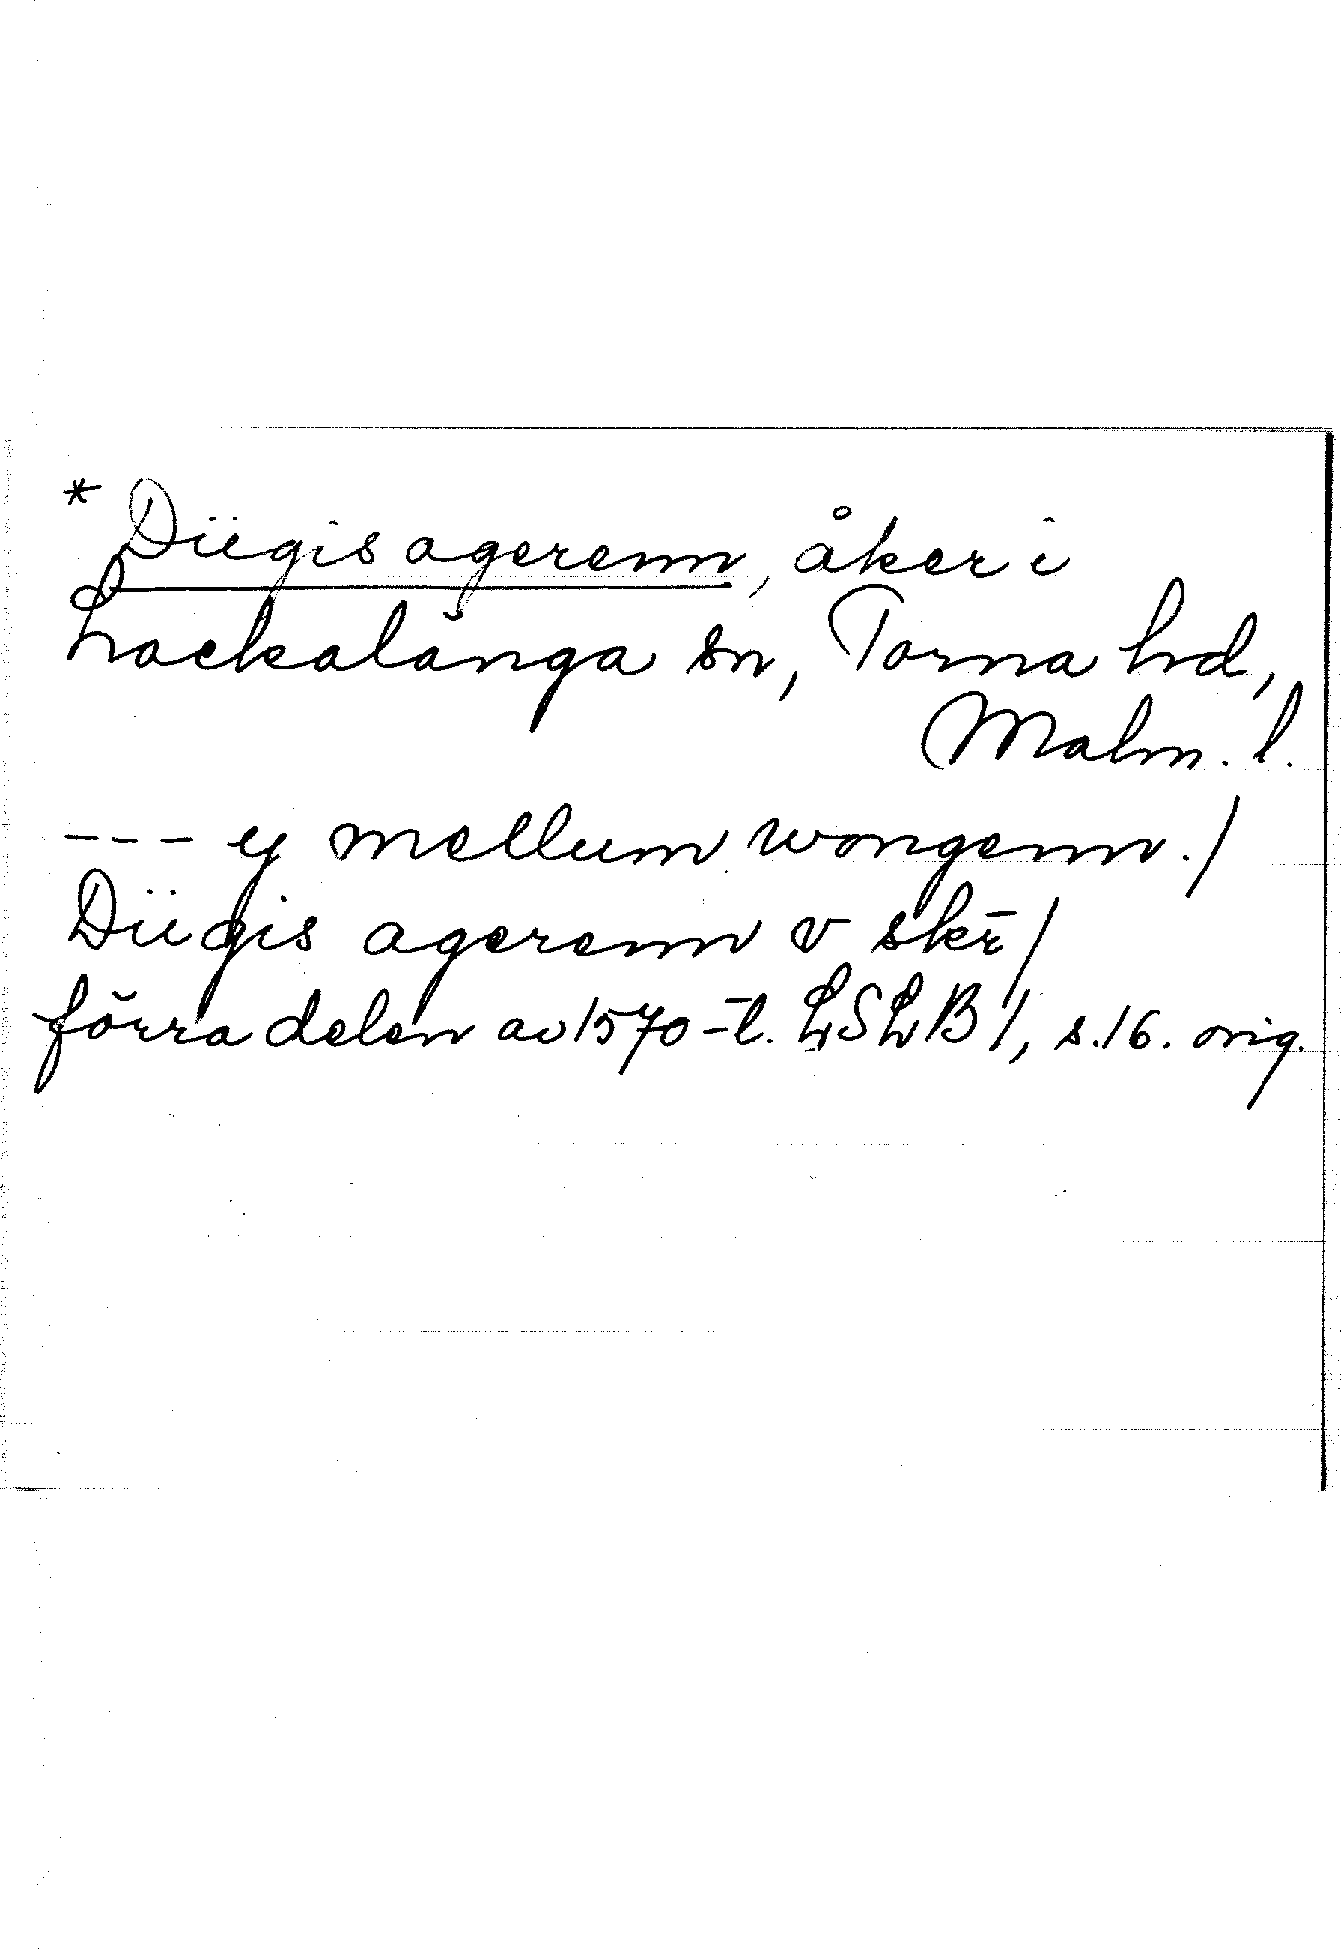 * Düegis agerenn, åker i
Lackalånga sn, Torna hd,
Malm. l.
--- ej mellum wongenn./
Düegis agerenn v skr̄/
förra delen av 1570-t. LSLB 1, s.16. orig.